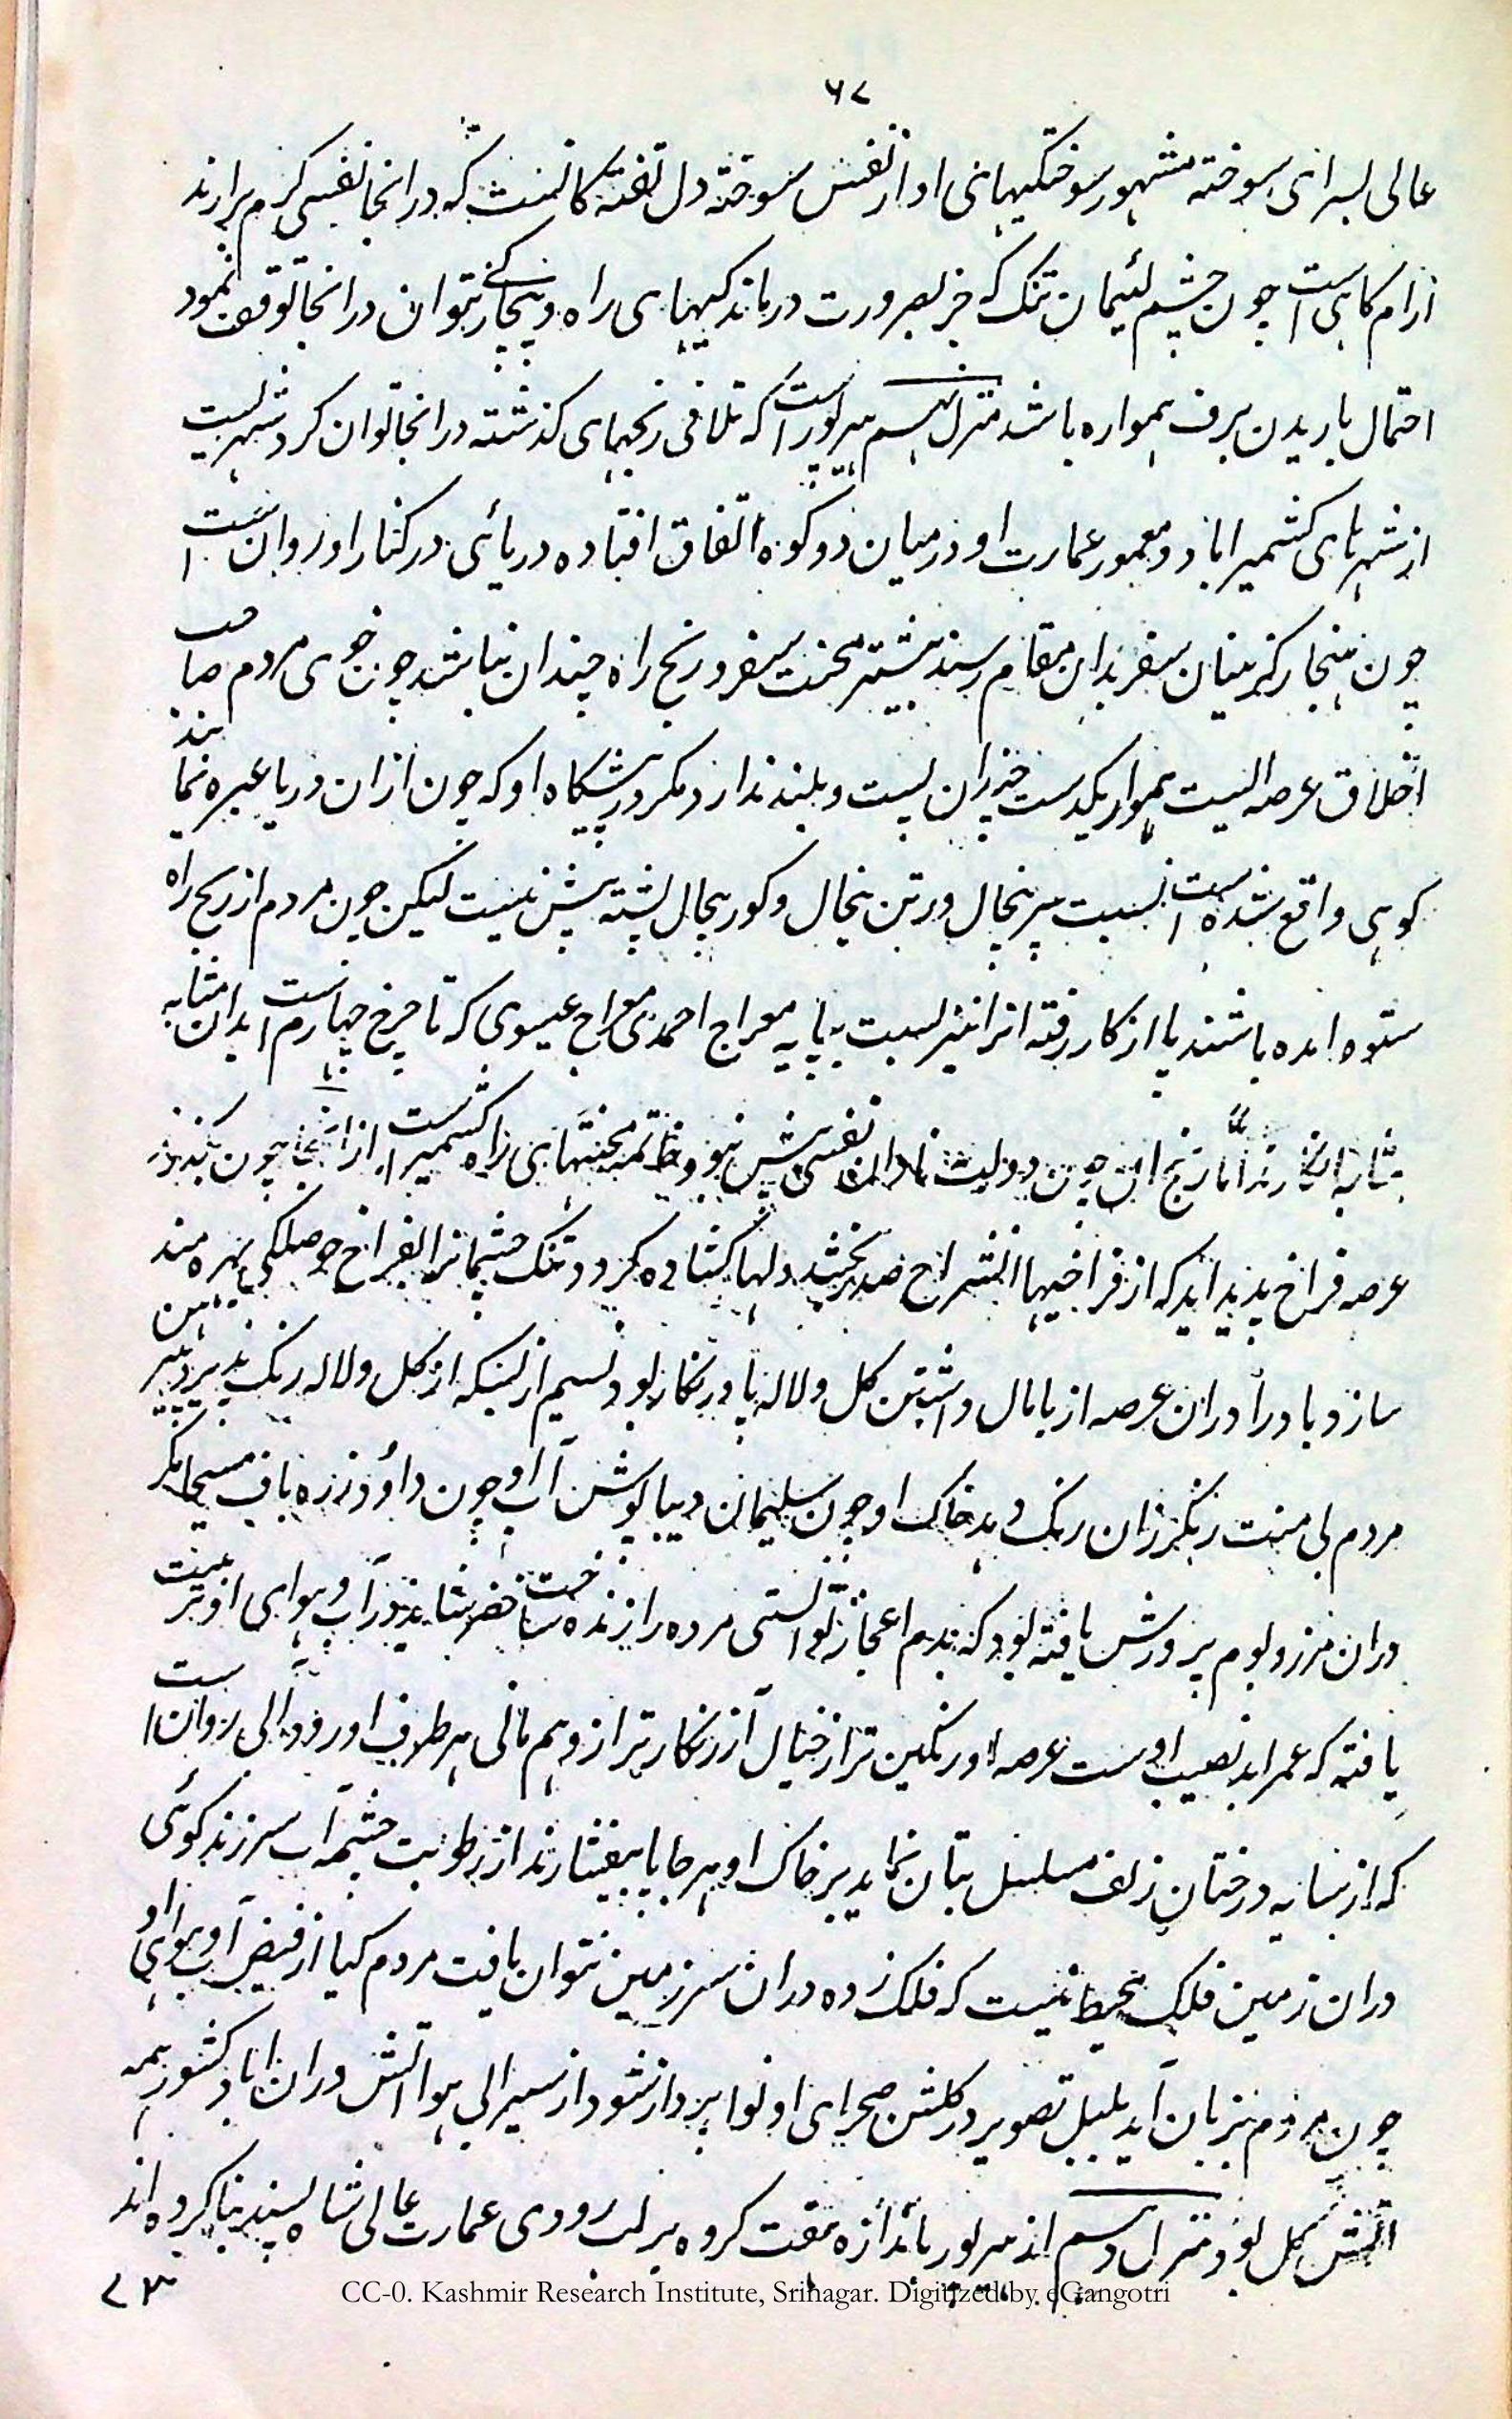 ۶۷
عالی بسرای سوخته مشهور سوختگیهای او از نفس سوخته دل تفته کانست که در انجا نفسی کرم برارند
ارام کاهی است چون چشم لئیمان تنک که جز بضرورت درماندکیهای راه و نتوان در انجا توقف نمود
احتمال باریدن برف همواره باشد منزل نهم هیرپور است که تلافی رنجهای کذشته در انجا توان کرد شهریست
از شهرهای کشمیر اباد و معمور عمارت او در میان دو کوه اتفاق افتاده دریائی در کنار او روان است
چون هنجار کزینان سفر بدان مقام رسند بیشتر محنت سفر و رنج راه چندان نباشد چون خوی مردم صاحب
اخلاق عرصه ایست هموار یکدست جز ان پست و بلند ندارد مکر در پیشکاه او که چون ازان دریا عبره نمایند
کوهی واقع شده است نسبت پیر پنجال و رتن پنجال و کور پنجال پشته بیش نیست لیکن چون مردم از رنج راه
ستوه امده باشند پا از کار رفته انرا نیز نسبت بپایه معراج احمدی معراج عیسوی که تا چرخ چهارم است بدان مثابه
مثابه انکارند اما رنج ان چون دولت نادان نفسی بیش نبود خاتمه محنتهای راه کشمیر است از انجا چون بکذرند
عرصه فراخ پدید اید که از فراخیها انشراح صدر بخشد دلها کشاده کردد تنک چشمانرا بفراخ حوصلکی بهره مند
سازد باد را دران عرصه از پامال داشتن کل و لاله پا در نکار بود نسیم از بسکه از کل و لاله رنک پذیرد پیرهن
مردم بی منت رنکرزان رنک دهد خاک او چون سلیمان دیبا پوش آب او چون داؤد زره باف مسیحا مکر
دران مرز و بوم پرورش یافته بود که بدم اعجاز توانستی مرده را زنده ساخت خضر شاید در آب و هوای او تربیت
یافته که عمر ابد نصیب اوست عرصه او رنکین تر از خیال آزر نکارتر از وهم مانی هر طرف او رود آبی روان است
که از سایه درختان زلف مسلسل بتان نماید بر خاک او هر جا پا بیفشارند از رطوبت چشمه آب سر زند کوئی
دران زمین فلک محیط نیست که فلک زده دران سرزمین نتوان یافت مردم کیا از فیض آب و هوای او
چون مردم بزبان آید بلبل تصویر در کلشن صحرای او نوا پرداز شود از سیرابی هوا آتش دران اباد کشور همه
آتش کل بود منزل دهم از هیرپور باندازه هفت کروه بر لب رودی عمارت عالی شاه پسند بنا کرده اند
CC-0. Kashmir Research Institute, Srinagar. Digitized by eGangotri